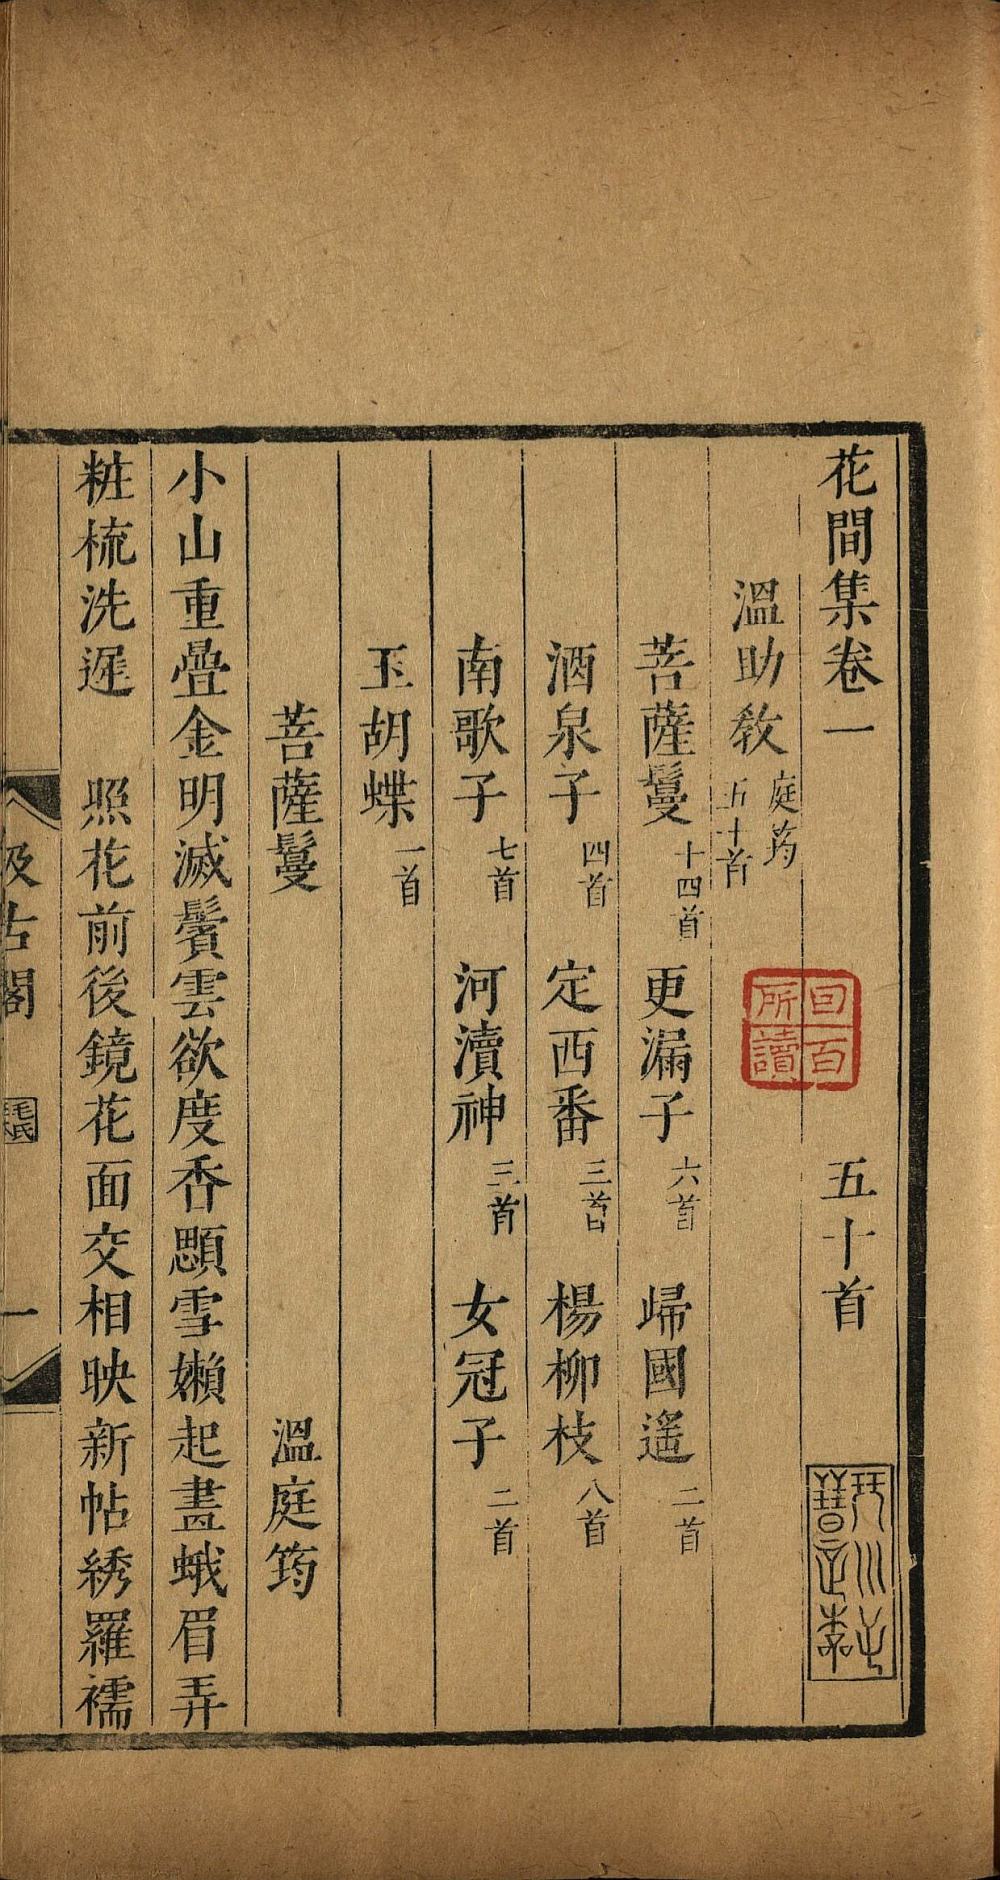 花間集卷一　五十首
溫助敎 庭筠 五十首
菩薩鬘 十四首　更漏子 六首　歸國遙 二首
酒泉子 四首　定西番 三首　楊柳枝 八首
南歌子 七首　河瀆神 三首　女冠子 二首
玉胡蝶 一首
菩薩鬘　溫庭筠
小山重疊金明滅鬢雲欲度香顋雪嬾起畫蛾眉弄
粧梳洗遲　照花前後鏡花面交相映新帖綉羅襦
汲古閣　毛氏　一
所讀